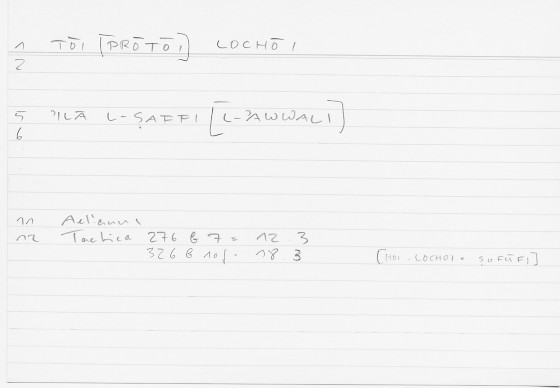 1 TŌI [PRŌTŌI] LOCHŌI
2
5 'ILĀ L-ṢAFFI [L-'AWWALI]
6
11 Aeliani
12 Tactica 276 B 7 = 12 3
326 B 10f. = 18 3 [HOI LOCHOI = ṢUFŪFI]